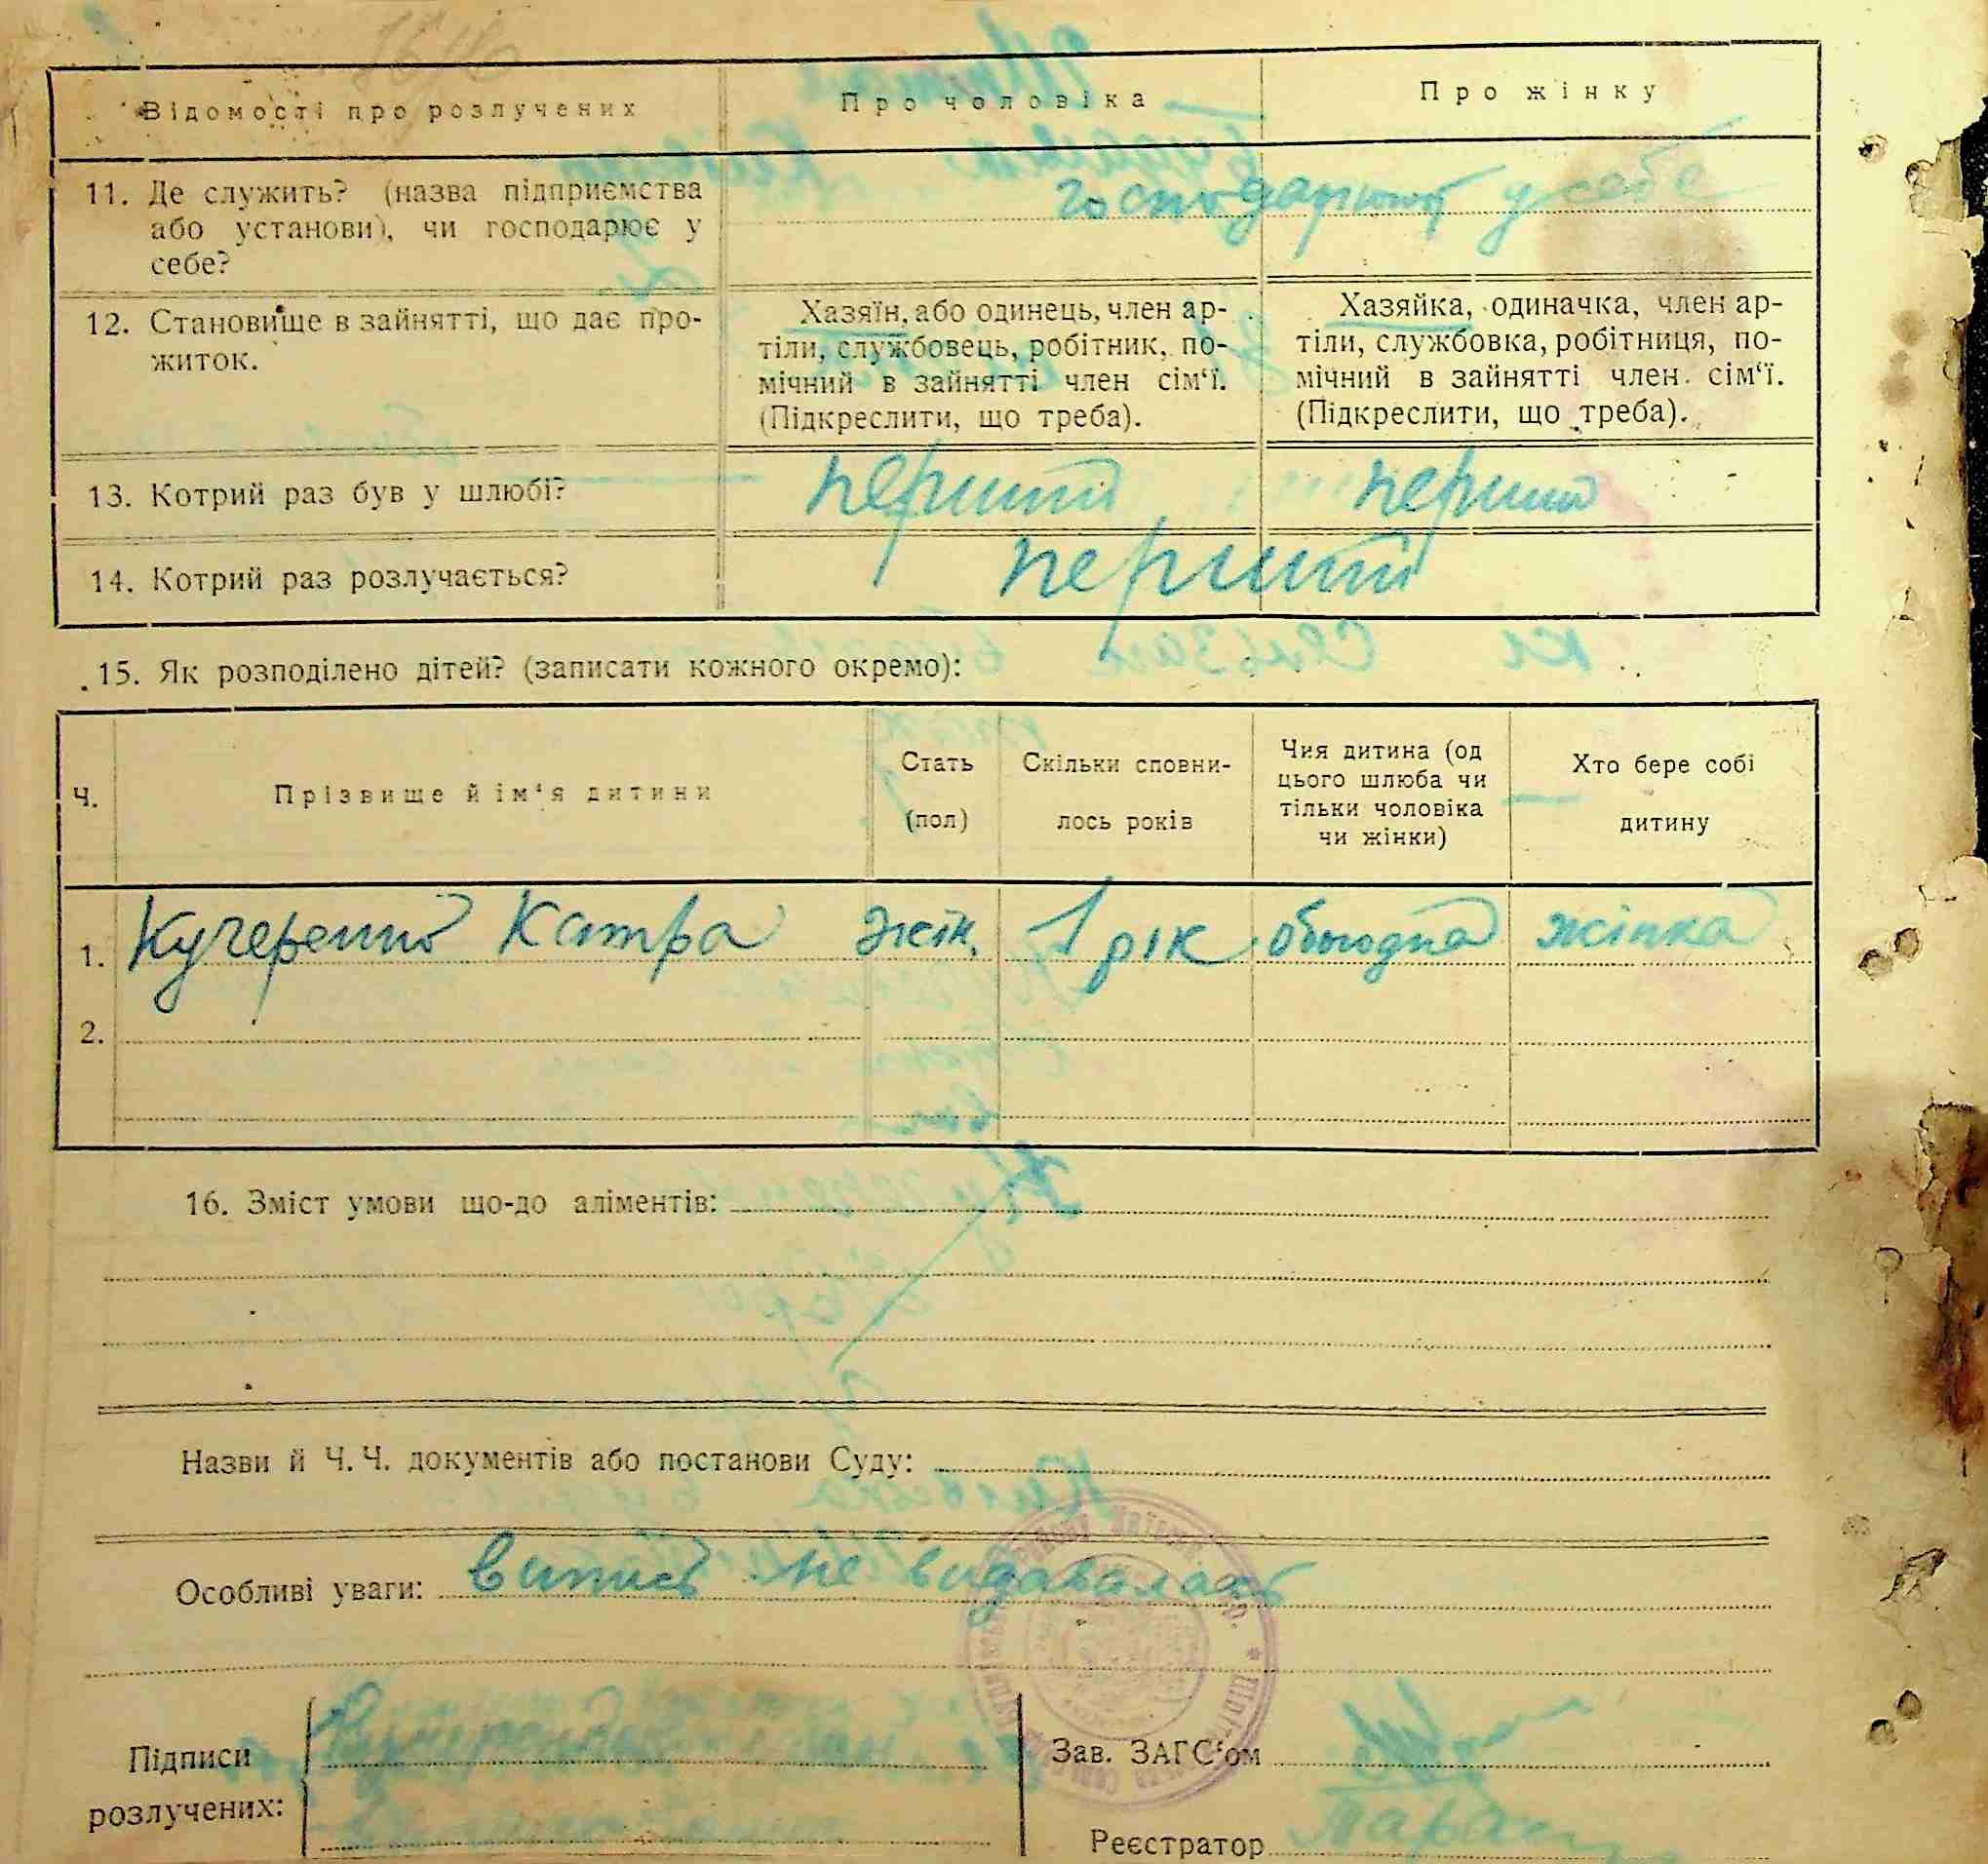 Відомості про розлучених Про чоловіка Про жінку
11. Де служить? (назва підприємства
або установи), чи господарює у
себе?
господарюют у себе
12. Становище в зайнятті, що дає про-
житок.
Хазяїн, або одинець, член ар-
тіли, службовець, робітник, по-
мічний в зайнятті член сім‘ї.
(Підкреслити, що треба).
Хазяйка, одиначка, член ар-
тіли, службовка, робітниця, по-
мічний в зайнятті член сім‘ї.
(Підкреслити, що треба).
13. Котрий раз був у шлюбі? перший перший
14. Котрий раз розлучається? перший
15. Як розподілено дітей? (записати кожного окремо):
Ч.
Прізвище й ім‘я дитини
Стать
(пол)
Скільки сповни-
лось років
Чия дитина (од
цього шлюба чи
тільки чоловіка
чи жінки)
Хто бере собі
дитину
1. Кучеренко Катря жін. 1 рік жінка
2.
16. Зміст умови що-до аліментів:
Назви й Ч. Ч. документів або постанови Суду:
Особливі уваги: випись не видавалась
Підписи
розлучених:
Зав. ЗАГС‘ом
Реєстратор